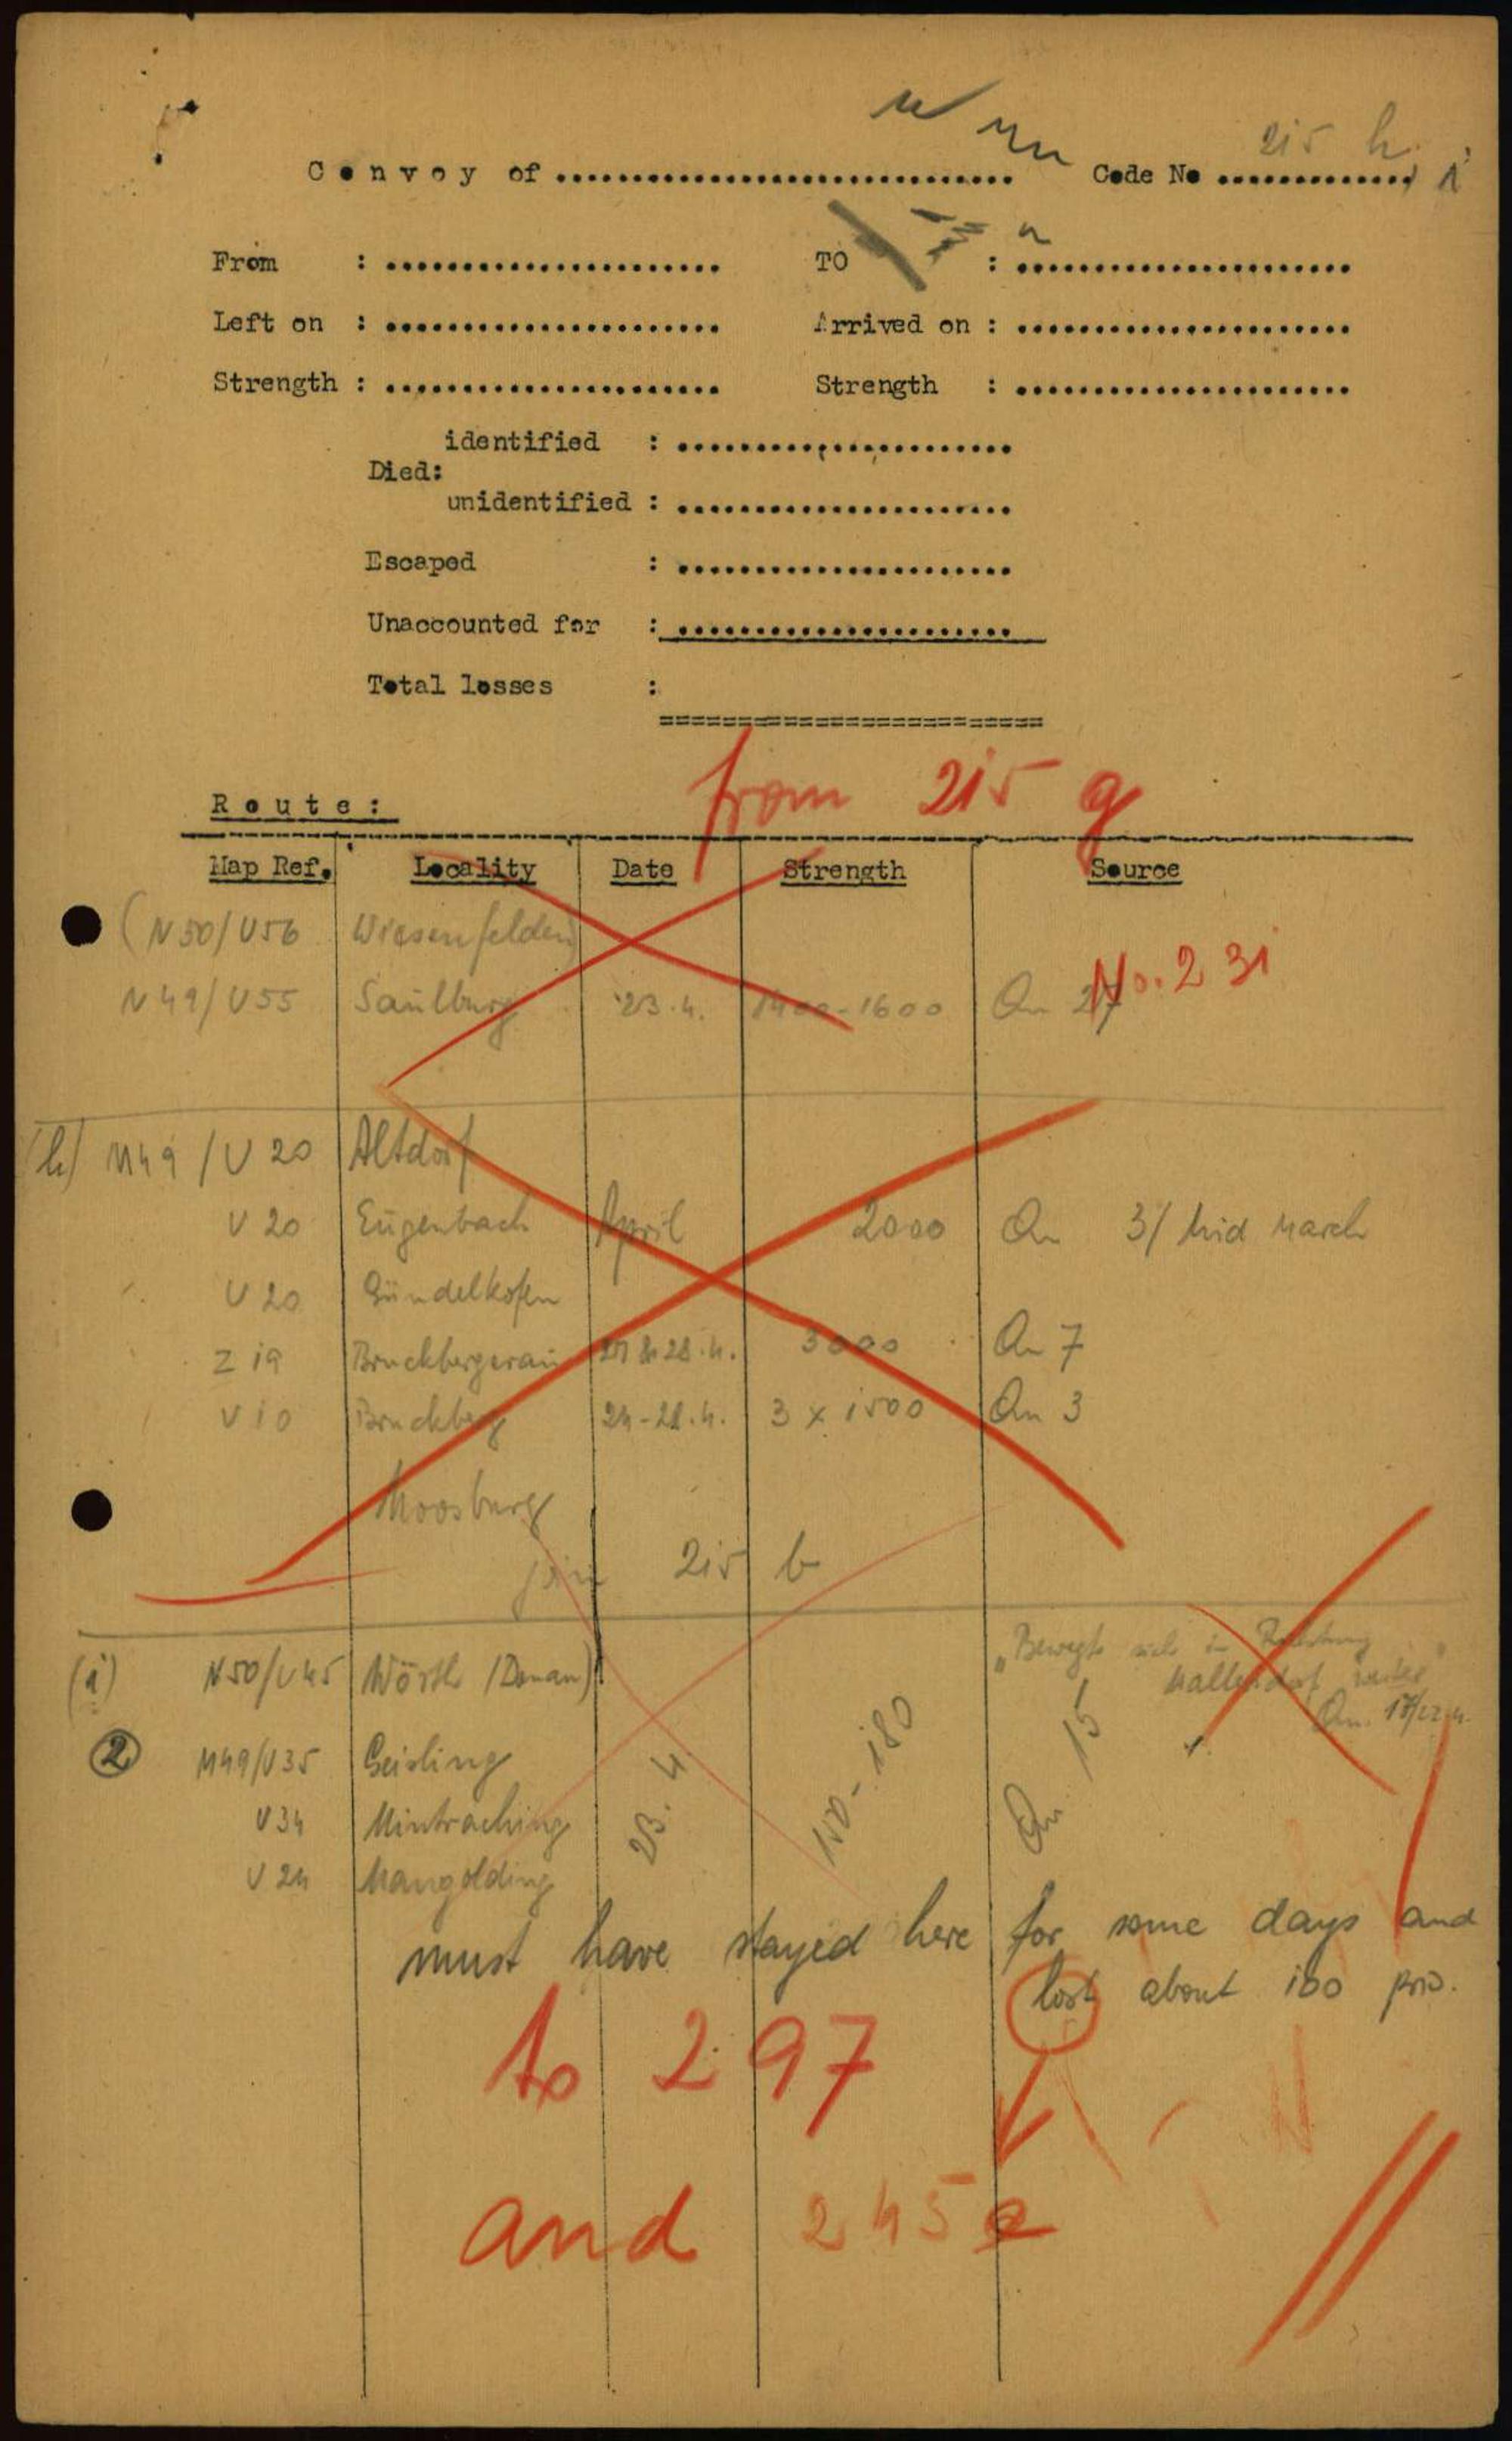 215 h, i
Convoy of .............................. Code No .............
From : ...................... TO : ......................
Left on : ...................... Arrived on : ......................
Strength : ...................... Strength : ......................
identified : ......................
Died:
unidentified : ......................
Escaped : ......................
Unaccounted for : ......................
Total losses :
========================
from 215 g
Route:
Map Ref. Locality Date Strength Source
(N50/U56 Wiesenfelden)
No. 231
N49/U55 Saulburg 23.4. 1400-1600 Qu 27
(h) M49/U20 Altdorf
U20 Eugenbach April 2000 Qu 3/ Mid March
U20 Gündelkofen
Z19 Bruckbergerau 27 & 28.4. 3000 Qu 7
U10 Bruckberg 24-28.4. 3 x 1500 Qu 3
Moosburg
join 215 b
(i) N50/U45 Wörth (Donau) "Bewegte sich in Richtung
Mallersdorf weiter"
Qu.
② M49/U35 Geisling
U34 Mintraching 23.4 150-180 Qu 15
U24 Mangolding
must have stayed here for some days and
lost about 100 pris.
to 297
and 245